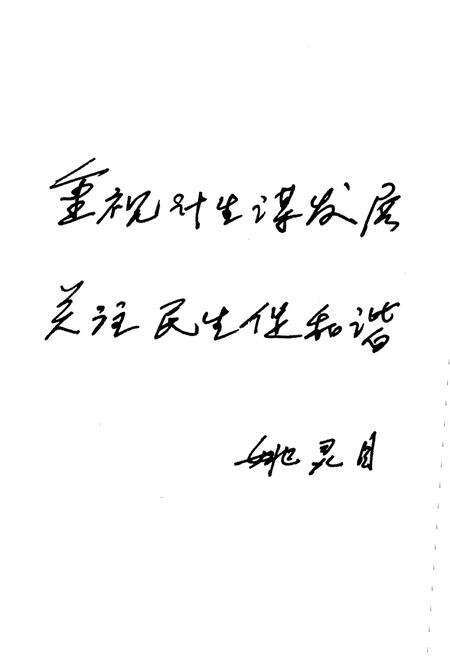 重视计生谋发展
关注民生促和谐
灵目